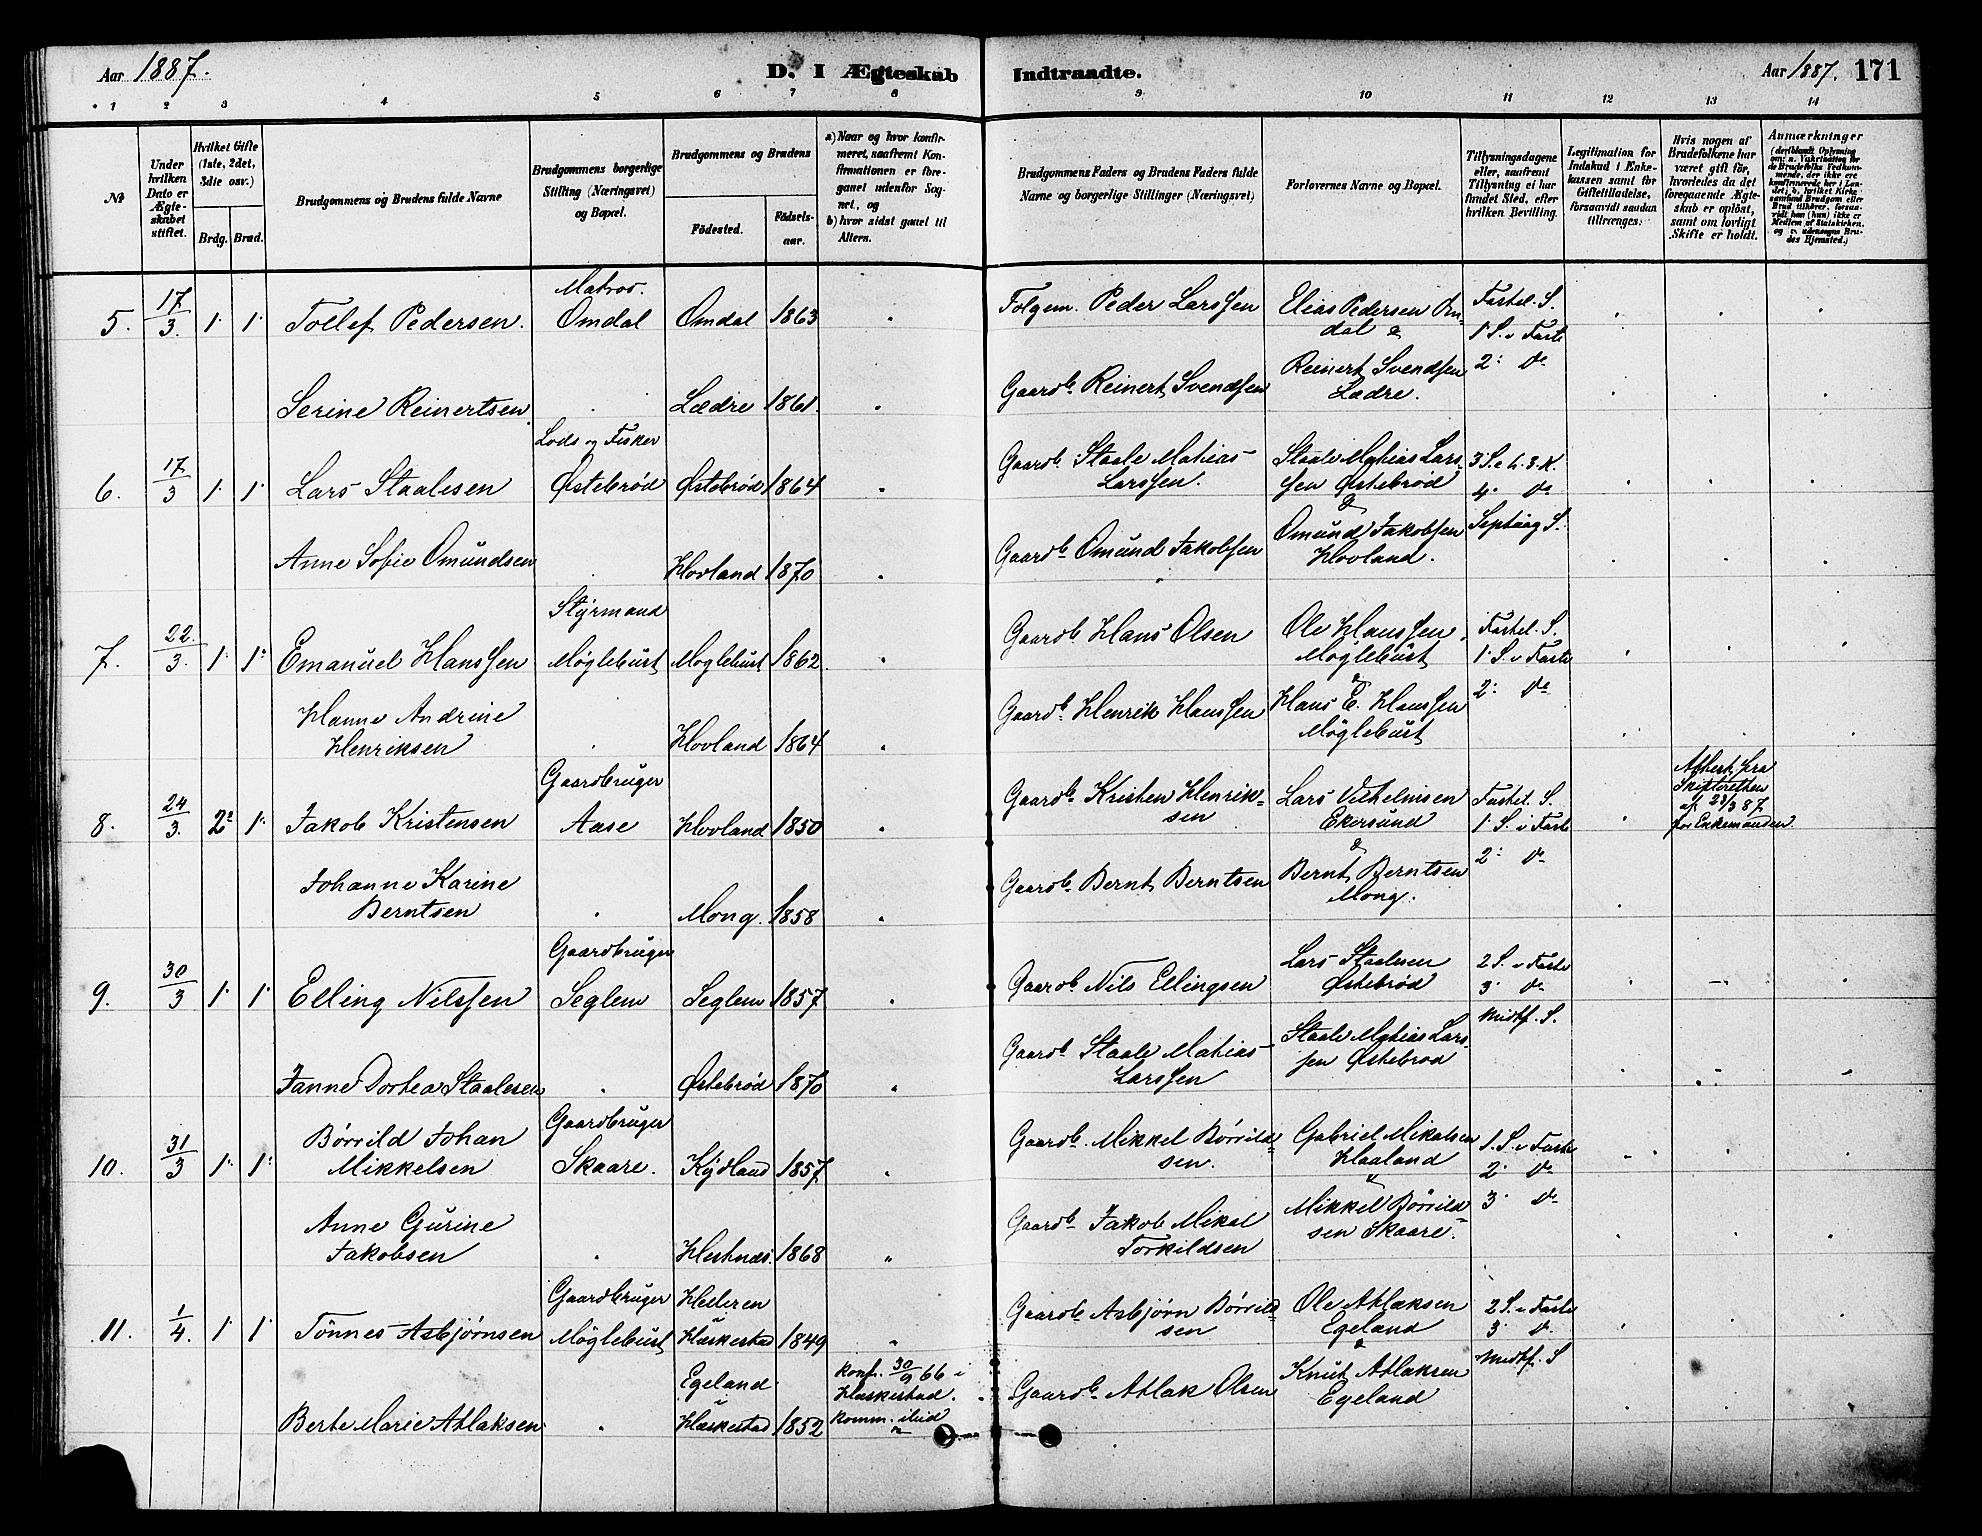 Aar 1887.
D. I Ægteskab Indtraadte.
Aar 1887. 171
1 2 3 4 5 6 7 8 9 10 11 12 13 14
№
Under hvilken Dato er Ægteskabet stiftet.
Hvilket Gifte (1ste, 2det, 3die osv.)
Brdg. Brud.
Brudgommens og Brudens fulde Navne
Brudgommens borgerlige Stilling (Næringsvei) og Bopæl.
Brudgommens og Brudens
Fødested. Fødselsaar.
a) Naar og hvor konfirmeret, saafremt Konfirmationen er foregaaet udenfor Sognet, og
b) hvor sidst gaaet til Alters.
Brudgommens Faders og Brudens Faders fulde Navne og borgerlige Stillinger (Næringsvei)
Forlovernes Navne og Bopæl.
Tillysningsdagene eller, saafremt Tillysning ei har fundet Sted, efter hvilken Bevilling.
Legitimation for Indskud i Enkekassen samt for Giftetilladelse, forsaavidt saadan tiltrænges:
Hvis nogen af Brudefolkene har været gift før, hvorledes da det foregaaende Ægteskab er opløst, samt om lovligt Skifte er holdt.
Anmærkninger
(deriblandt Oplysning om: a. Vakcination for de Brudefolks Vedkommende, der ikke ere konfirmerede her i Landet; b. hvilket Kirkesamfund Brudgom eller Brud tilhører, forsaavidt han (hun) ikke er Medlem af Statskirken, og c. udensogns Brudes Hjemsted.)
5. 17/3. 1. 1. Tollef Pedersen. Matros. Omdal Omdal 1863 Folgem. Peder Larssen Elias Pedersen Omdal & Fastel. S. 1 S. i Faste 2. do
Serine Reinertsen Lædre 1861. Gaardb. Reinert Svendsen Reinert Svendsen Lædre.
6. 17/3 1. 1. Lars Staalesen Lods og Fisker Østebrød Østebrød 1864 Gaardb. Staale Matias Larssen. Staale Matias Larssen Østebrød & 3 S. e. h. 3. K. 4. do Septuag S.
Anne Sofie Omundsen Hovland 1870 Gaardb. Omund Jakobsen Omund Jakobsen Hovland.
7. 22./3. 1. 1. Emanuel Hanssen Styrmand Møglebust Moglebust 1862. Gaardb. Hans Olsen Ole Hanssen Møglebust & Fastel. S. 1. S. i Faste 2. do
Hanne Andrine Henriksen Hovland 1864 Gaardb. Henrik Hanssen Hans E. Hanssen Møglebust
8. 24/3. 2. 1. Jakob Kristensen Gaardbruger Aase Hovland 1850 Gaardb. Kristen Henriksen Lars Vilhelmsen Ekersund & Fastel. S. 1. S. i Faste 2. do Attest fra Skifteretten af 23/3 87 for Enkemanden.
Johanne Karine Berntsen Mong. 1858 Gaardb. Bernt Berntsen Bernt Berntsen Mong.
9. 30/3 1. 1. Elling Nilssen Gaardbruger Seglem Seglem 1857 Gaardb. Nils Ellingsen Lars Staalesen Østebrød 2 S. i Faste 3. do Midtf. S.
Janne Dortea Staalesen Østebrød 1870 Gaardb. Staale Matias Larssen Staale Matias Larssen Østebrød
10. 31/3 1. 1. Børrild Johan Mikkelsen Gaardbruger Skaare. Kydland 1857 Gaardb. Mikkel Børrildsen. Gabriel Mikalsen Haaland & 1. S. i Faste 2. do 3. do
Anne Gurine Jakobsen Hestnæs. 1868 Gaardb. Jakob Mikal Torkildsen Mikkel Børrildsen Skaare.
11. 1/4. 1. 1. Tønnes Asbjørnsen Gaardbruger Møglebust Hæskestad 1849 Gaardb. Asbjørn Børrildsen Ole Atlaksen Egeland & 2 S. i Faste 3. do Midtf. S
Berte Marie Atlaksen Egeland Hæskestad 1852 konf. 30/9 66 i Hæskestad. komm. ibid Gaardb. Atlak Olsen Knut Atlaksen Egeland